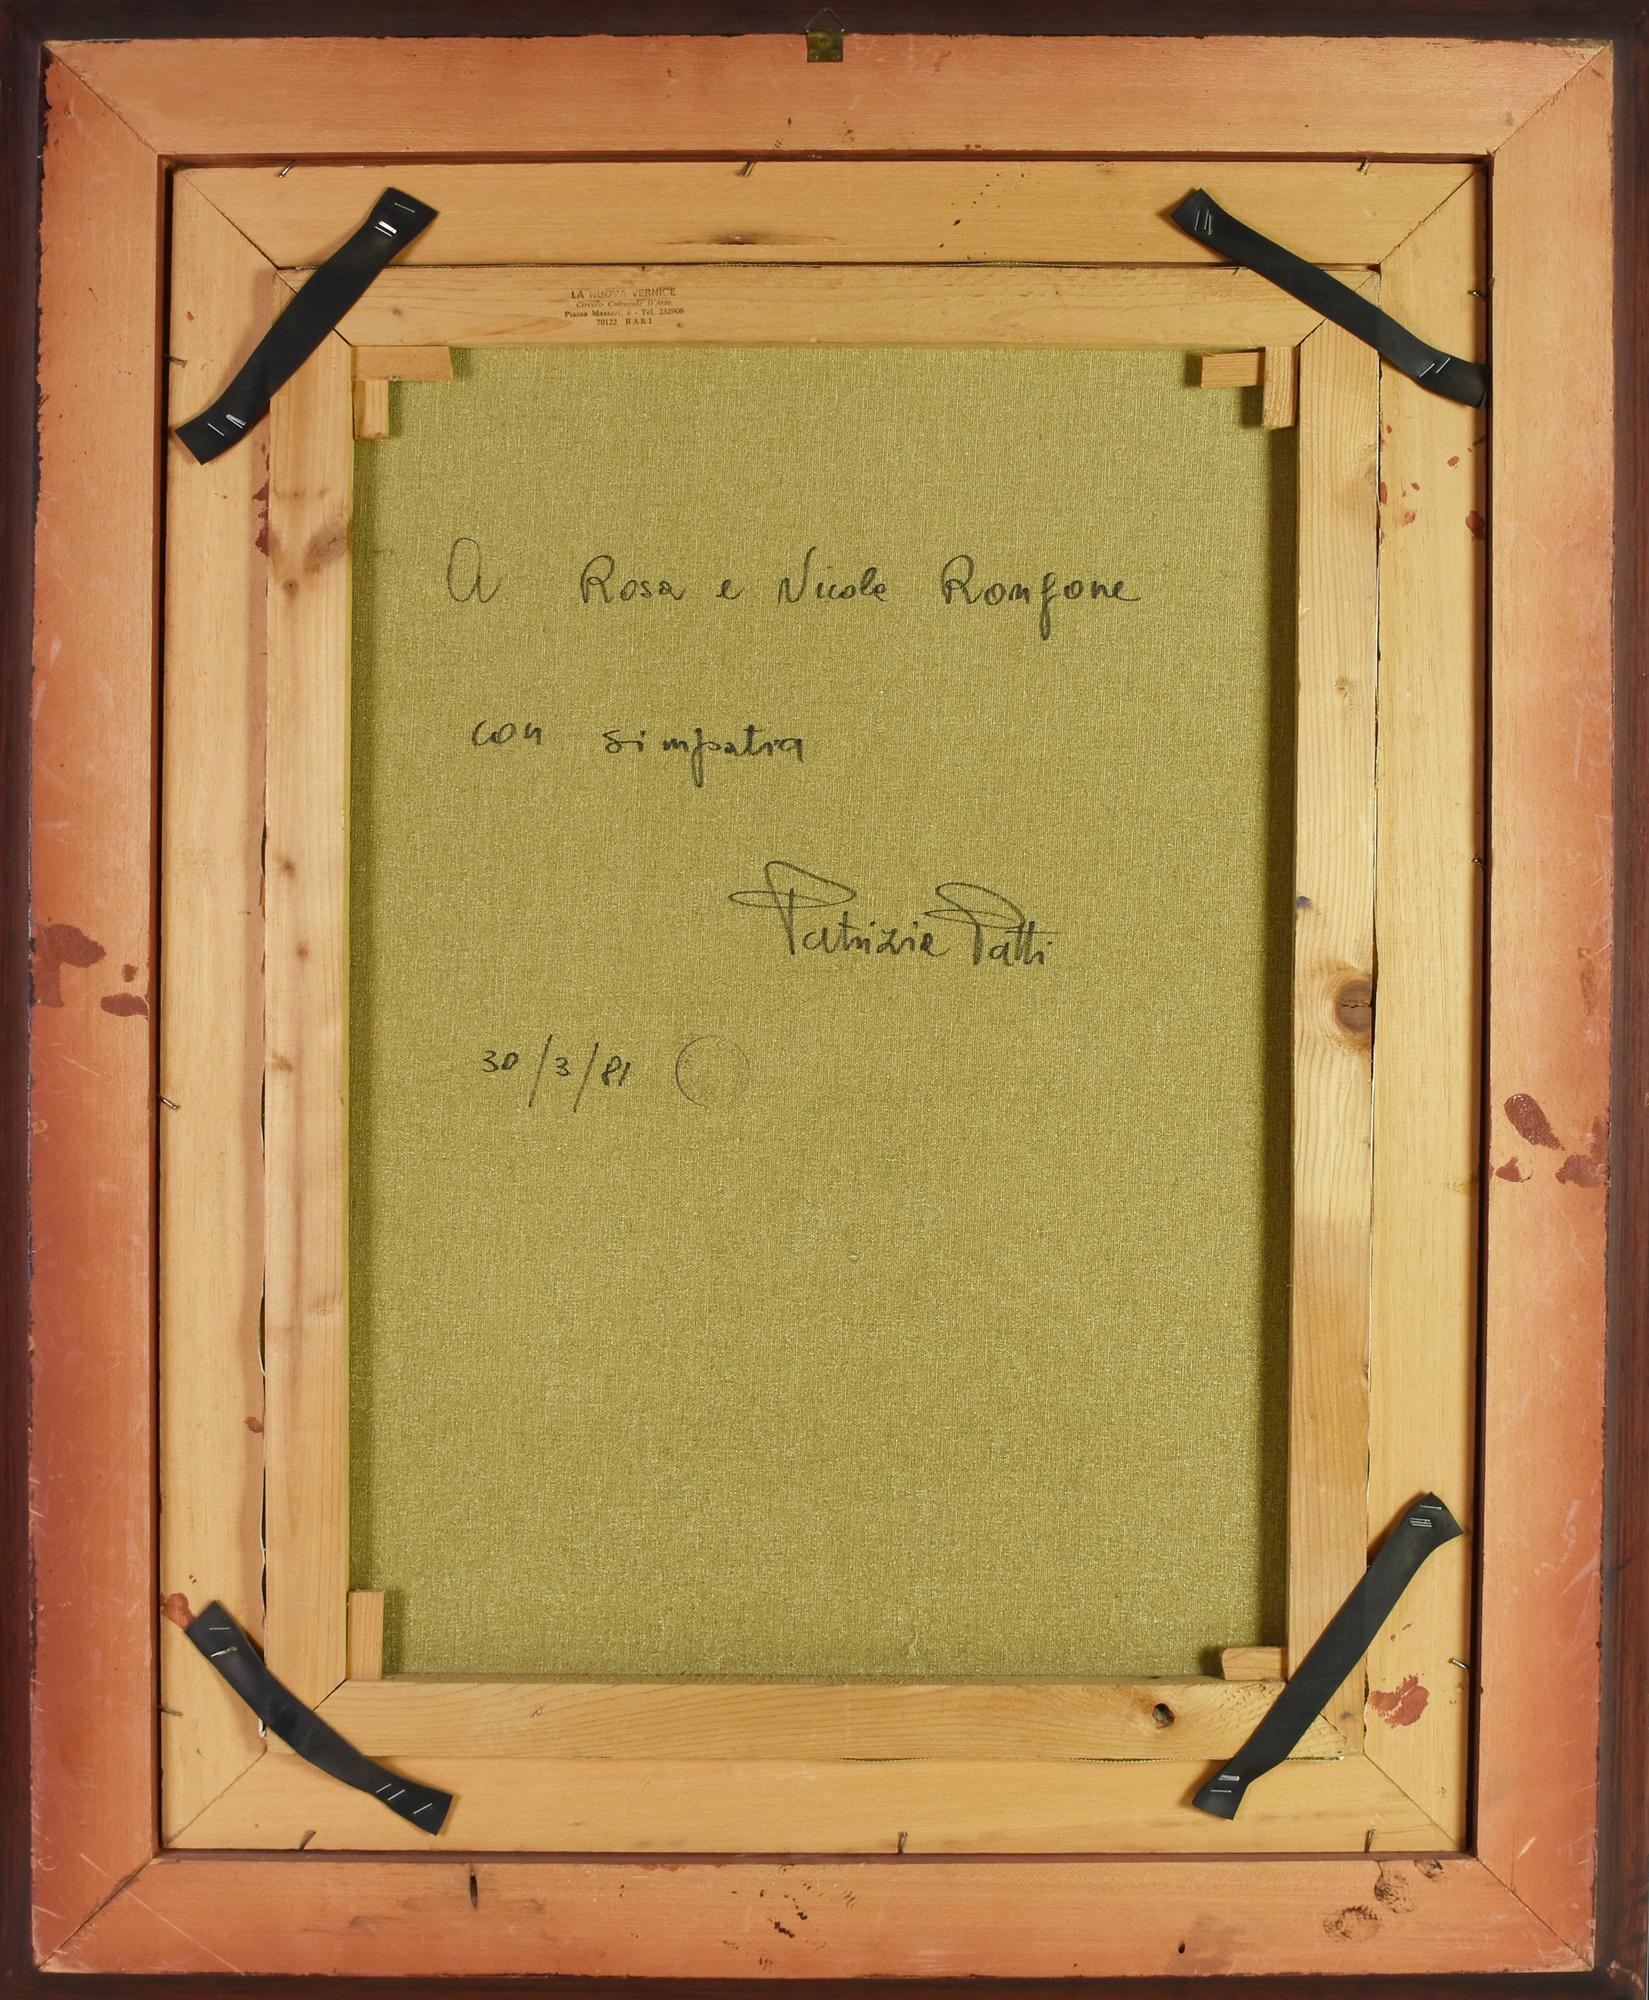 LA NUOVA VERNICE
Circolo Culturale D'Arte
Piazza Massari, 6 - Tel. 232906
70122 BARI
A Rosa e Nicola Rongone
con simpatia
Patrizia Patti
30/3/81